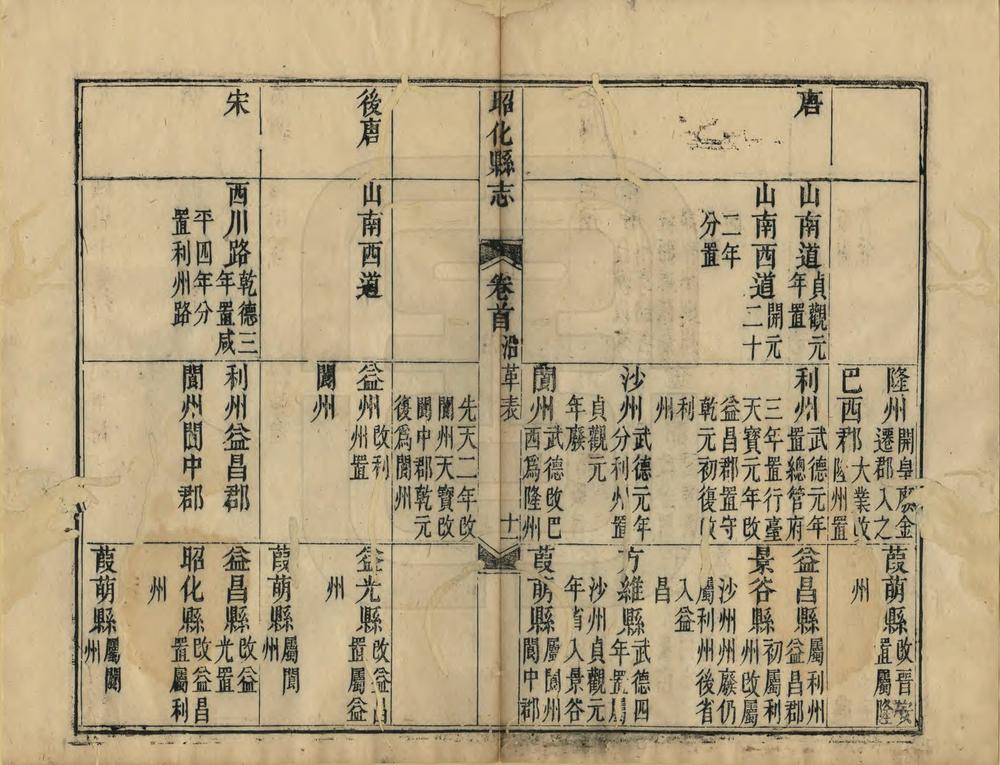 隆州開皇廢金
遷郡入之
巴西郡大業改
隆州置
葭萌縣改晉安
置屬隆
州
唐
山南道貞觀元
年置
山南西道開元
二十
二年
分置
利州武德元年
置總管府
三年置行臺
天寶元年改
益昌郡置守
乾元初復改
利
州
沙州武德元年
分利州置
貞觀元
年廢
閬州武德改巴
西爲隆州
益昌縣屬利州
益昌郡
景谷縣初屬利
州改屬
沙州州廢仍
屬利州後省
入益
昌
方維縣武德四
年置屬
沙州貞觀元
年省入景谷
葭萌縣屬閬州
閬中郡
昭化縣志
卷首
沿革表
十
先天二年改
閬州天寶改
閬中郡乾元
復爲閬州
後唐
山南西道
益州改利
州置
閬州
益光縣改益昌
置屬益
州
葭萌縣屬閬
州
宋
西川路乾德三
年置咸
平四年分
置利州路
利州益昌郡
閬州閬中郡
益昌縣改益
光置
昭化縣改益昌
置屬利
州
葭萌縣屬閬
州